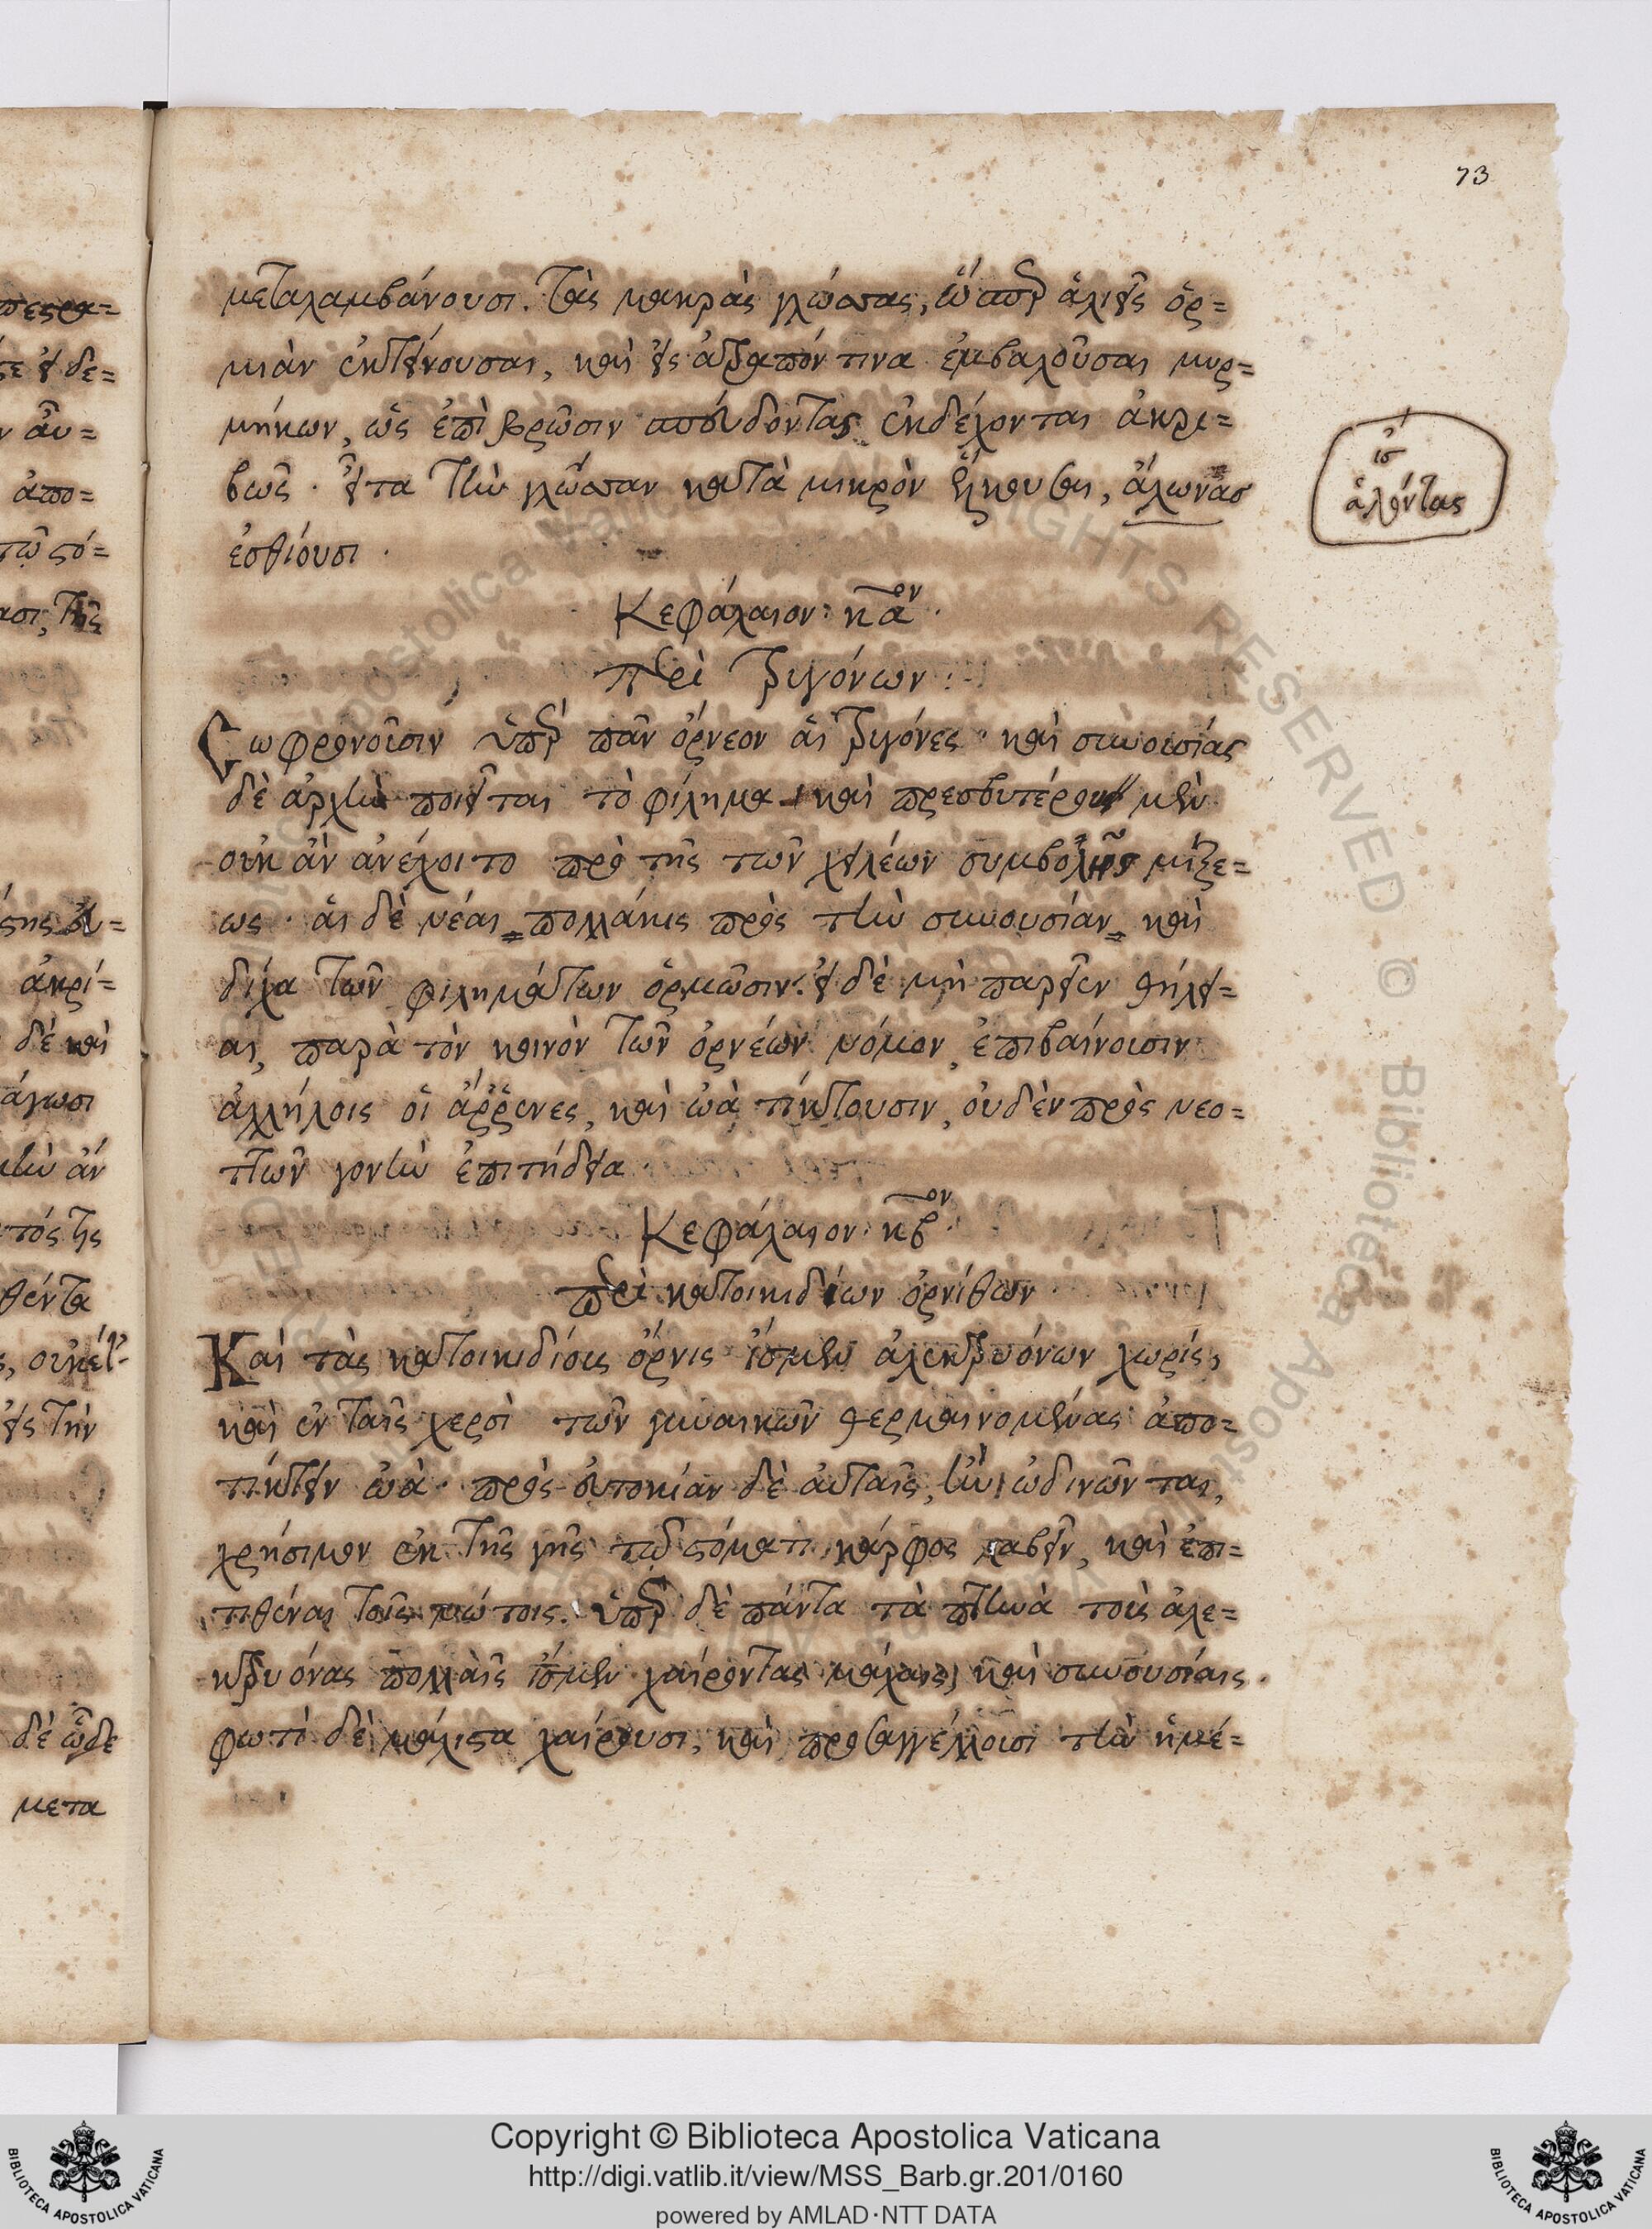 73
μεταλαμβάνουσι. τὰς μακρὰς γλώσσας, ὥσπερ ἁλιεῖς ὁρ=
μιὰν ἐκτείνουσαι, καὶ εἰς ἀτραπόν τινα ἐμβαλοῦσαι μυρ=
μήκων, ὡς ἐπὶ βρῶσιν σπεύδοντας ἐκδέχονται ἀκρι=
βῶς. εἶτα τὴν γλῶσσαν κατὰ μικρὸν ἕλκουσαι, ἁλωνᾶσ
ἐσθίουσι.
ἁλόντας
Κεφάλαιον: κα^ον.
περὶ τρυγόνων:
Σωφρονοῦσιν ὑπὲρ πᾶν ὄρνεον αἱ τρυγόνες. καὶ συνουσίας
δὲ ἀρχὴν ποιεῖται τὸ φίλημα. καὶ πρεσβυτέρους μὲν
οὐκ ἂν ἀνέχοιτο πρὸ τῆς τῶν χειλέων συμβολῆς μίξε=
ως. αἱ δὲ νέαι πολλάκις πρὸς τὴν συνουσίαν καὶ
δίχα τῶν φιλημάτων ὁρμῶσιν. εἰ δὲ μὴ παρεῖεν θήλει=
αι, παρὰ τὸν κοινὸν τῶν ὀρνέων νόμον, ἐπιβαίνουσιν
ἀλλήλοις οἱ ἄῤῥενες, καὶ ὠὰ τίκτουσιν, οὐδὲν πρὸς νεο=
ττῶν γονὴν ἐπιτήδεια.
Κεφάλαιον: κβ^ον.
περὶ κατοικιδίων ὀρνίθων
Καὶ τὰς κατοικιδίους ὄρνις ἴσμεν ἀλεκτρυόνων χωρίς,
καὶ ἐν ταῖς χερσὶ τῶν γυναικῶν θερμαινομένας ἀπο=
τίκτειν ὠά. πρὸς εὐτοκίαν δὲ αὐταῖς, ἢν ὠδινῶνται,
χρήσιμον ἐκ τῆς γῆς τῷ στόματι κάρφος λαβεῖν, καὶ ἐπι=
τιθέναι τοῖς νώτοις. ὑπὲρ δὲ πάντα τὰ πτηνὰ τοὺς ἀλε=
κτρυόνας πολλαῖς ἴσμεν χαίροντας μάχαις, καὶ συνουσίαις.
φωτὶ δὲ μάλιστα χαίρουσι, καὶ προσαγγέλλουσι τὴν ἡμέ=
ἀκρί=
δὲ καὶ
δὲ ὧδε
μετα
BIBLIOTECA APOSTOLICA VATICANA
Copyright © Biblioteca Apostolica Vaticana
http://digi.vatlib.it/view/MSS_Barb.gr.201/0160
powered by AMLAD·NTT DATA
BIBLIOTECA APOSTOLICA VATICANA